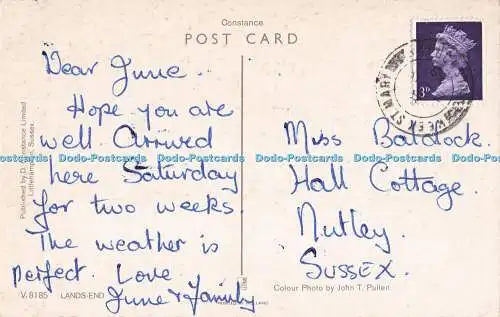 Constance
POST CARD
Dear June.
Hope you are
well. Arrived
here Saturday
for two weeks.
The weather is
perfect. Love
June & Family
Miss Baldock.
Hall Cottage.
Nutley.
SUSSEX.
3D
WEEK ST MARY
Published by D. Constance Limited
Littlehampton, Sussex.
V.8185 LANDS-END
Colour Photo by John T. Pullen
Dodo-Postcards Dodo-Postcards Dodo-Postcards Dodo-Postcards Dodo-Postcards